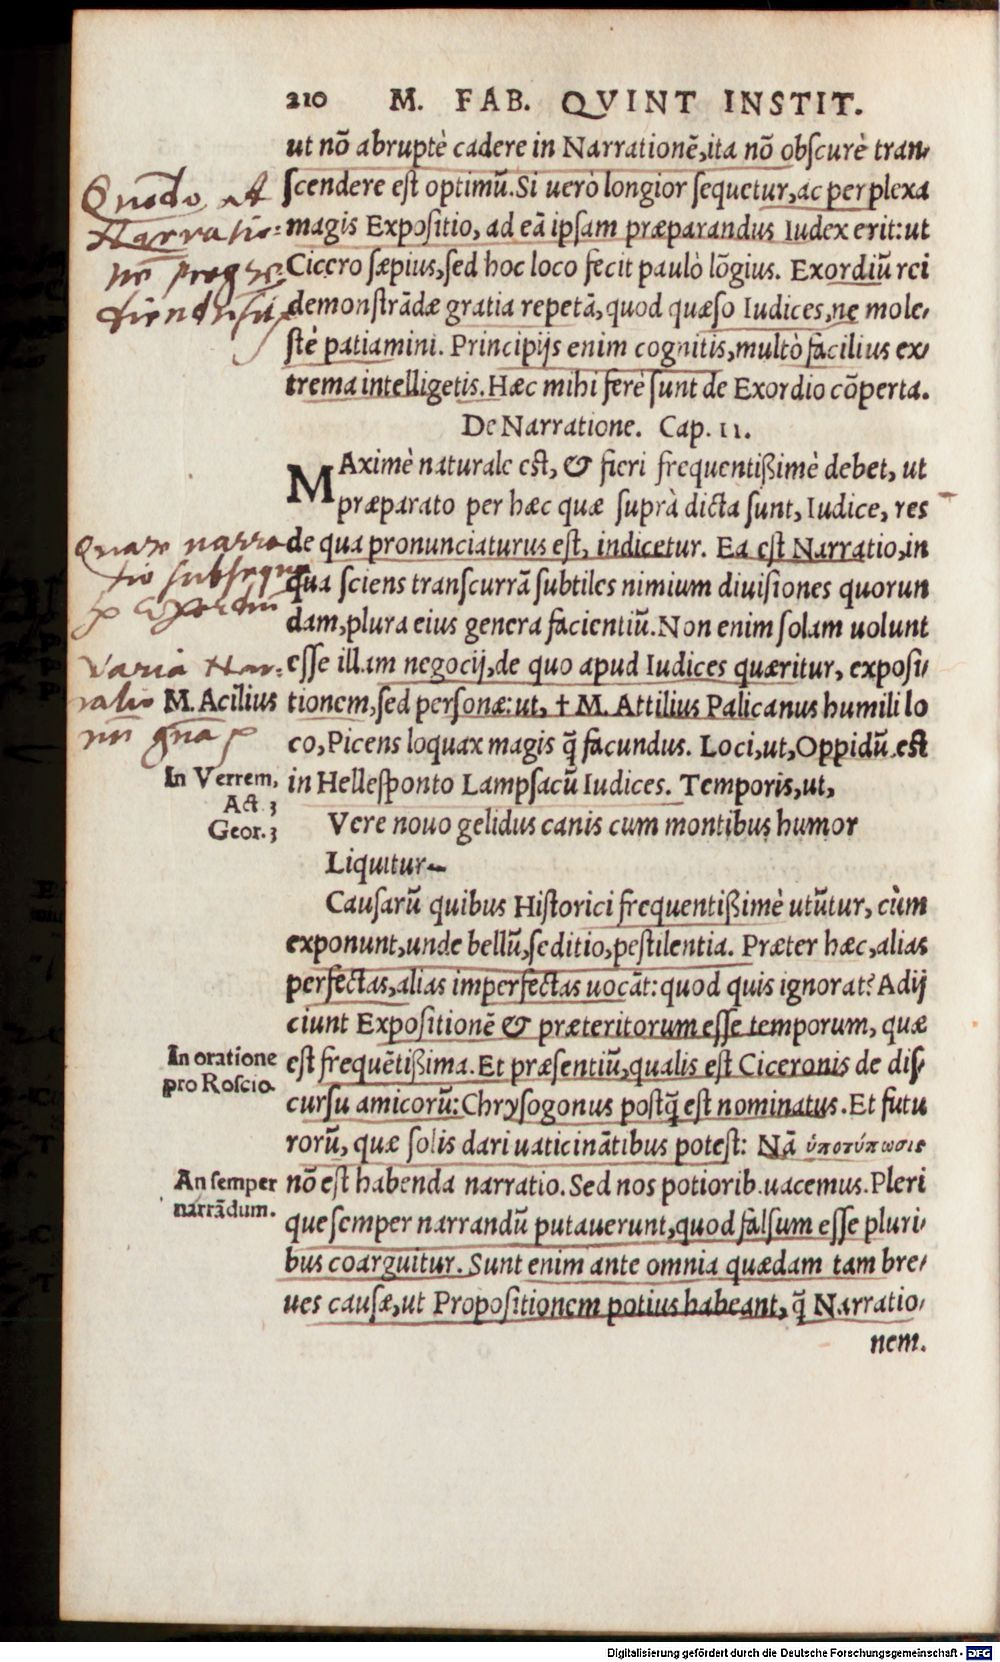 210 M. FAB. QVINT INSTIT.
ut nō abruptè cadere in Narrationē,ita nō obſcurè tran-
ſcendere eſt optimū.Si uerò longior ſequetur,ac perplexa
magis Expoſitio, ad eā ipſam præparandus Iudex erit:ut
Cicero ſæpius,ſed hoc loco fecit paulò lōgius. Exordiū rei
demonſtrādæ gratia repetā,quod quæſo Iudices,ne mole-
ſtè patiamini. Principijs enim cognitis,multò facilius ex-
trema intelligetis.Hæc mihi ferè ſunt de Exordio cōperta.
De Narratione. Cap. II.
MAximè naturale eſt, & fieri frequentißimè debet, ut
præparato per hæc quæ ſuprà dicta ſunt, Iudice, res
de qua pronunciaturus eſt, indicetur. Ea eſt Narratio,in
qua ſciens tranſcurrā ſubtiles nimium diuiſiones quorun
dam,plura eius genera facientiū.Non enim ſolam uolunt
eſſe illam negocij,de quo apud Iudices quæritur, expoſi-
M. Acilius tionem,ſed perſonæ:ut, † M. Attilius Palicanus humili lo
co,Picens loquax magis q̄ facundus. Loci,ut,Oppidū eſt
In Verrem, in Helleſponto Lampſacū Iudices. Temporis,ut,
Act. 3
Geor. 3 Vere nouo gelidus canis cum montibus humor
Liquitur—
Cauſarū quibus Hiſtorici frequentißimè utūtur, cùm
exponunt,unde bellū,ſeditio,peſtilentia. Præter hæc,alias
perfectas,alias imperfectas uocāt:quod quis ignorat? Adij
ciunt Expoſitionē & præteritorum eſſe temporum, quæ
In oratione eſt frequētißima. Et præſentiū,qualis eſt Ciceronis de diſ-
pro Roſcio. curſu amicorū: Chryſogonus poſtq̄ eſt nominatus. Et futu
rorū, quæ ſolis dari uaticinātibus poteſt: Nā ὑποτύπωσις
An ſemper nō eſt habenda narratio. Sed nos potiorib.uacemus.Pleri
narrādum. que ſemper narrandū putauerunt,quod falſum eſſe pluri-
bus coarguitur. Sunt enim ante omnia quædam tam bre-
ues cauſæ,ut Propoſitionem potius habeant, q̄ Narratio-
nem.
Varia Nar-
Digitalisierung gefördert durch die Deutsche Forschungsgemeinschaft - DFG